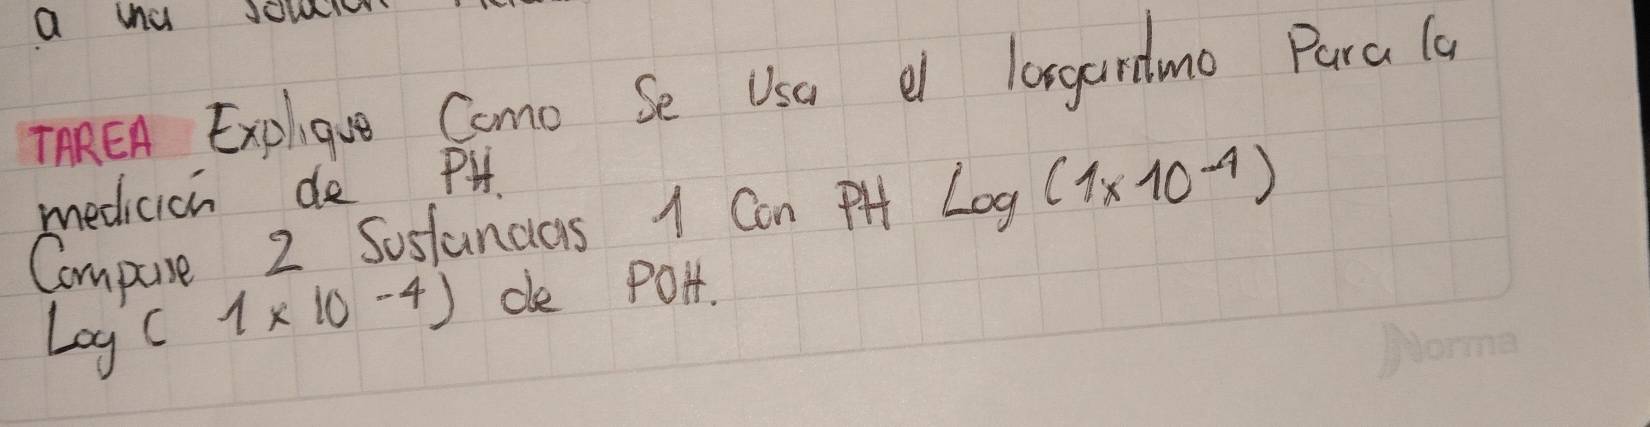 a una solución
TAREA Explique Como Se Usa el losgaritmo Para la
medición de PH.
Compare 2 Sustancias 1 Con PH Log (1x10-4)
Log ( 1x10-4) de POH.
Norma